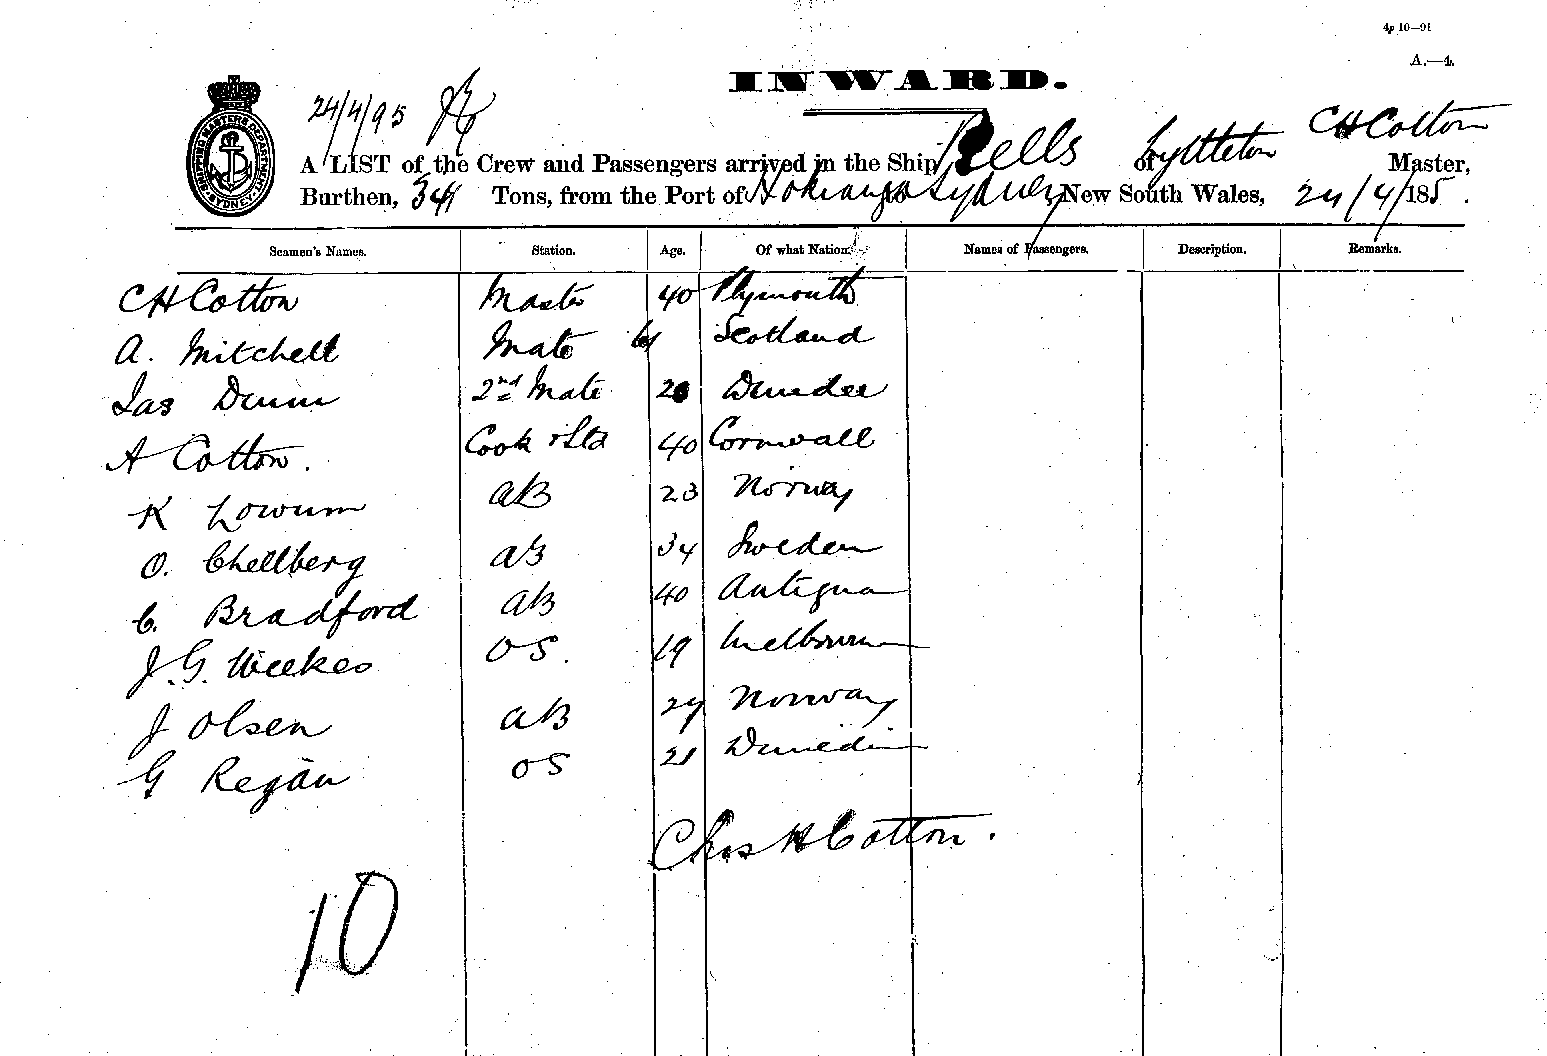 4p 10—91
A.—4.
INWARD.
24/4/95
A LIST of the Crew and Passengers arrived in the Ship Pells of Lyttleton CH Cotton Master,
Burthen, 341 Tons, from the Port of Hokianga to Sydney New South Wales, 24/4/185.
SHIPPING MASTERS DEPARTMENT SYDNEY
Seamen's Names. Station. Age. Of what Nation. Names of Passengers. Description. Remarks.
CH Cotton Master 40 Plymouth
A. Mitchell Mate 61 Scotland
Jas Dunn 2nd Mate Dundee
A Cotton. Cook & Std 40 Cornwall
K Lowum AB 23 Norway
O. Chellberg AB 34 Sweden
C. Bradford AB 40 Antigua
J.G. Weekes OS. 19 Melbourne
J Olsen AB 27 Norway
G Regan OS 21 Dunedin
Chas H Cotton.
10